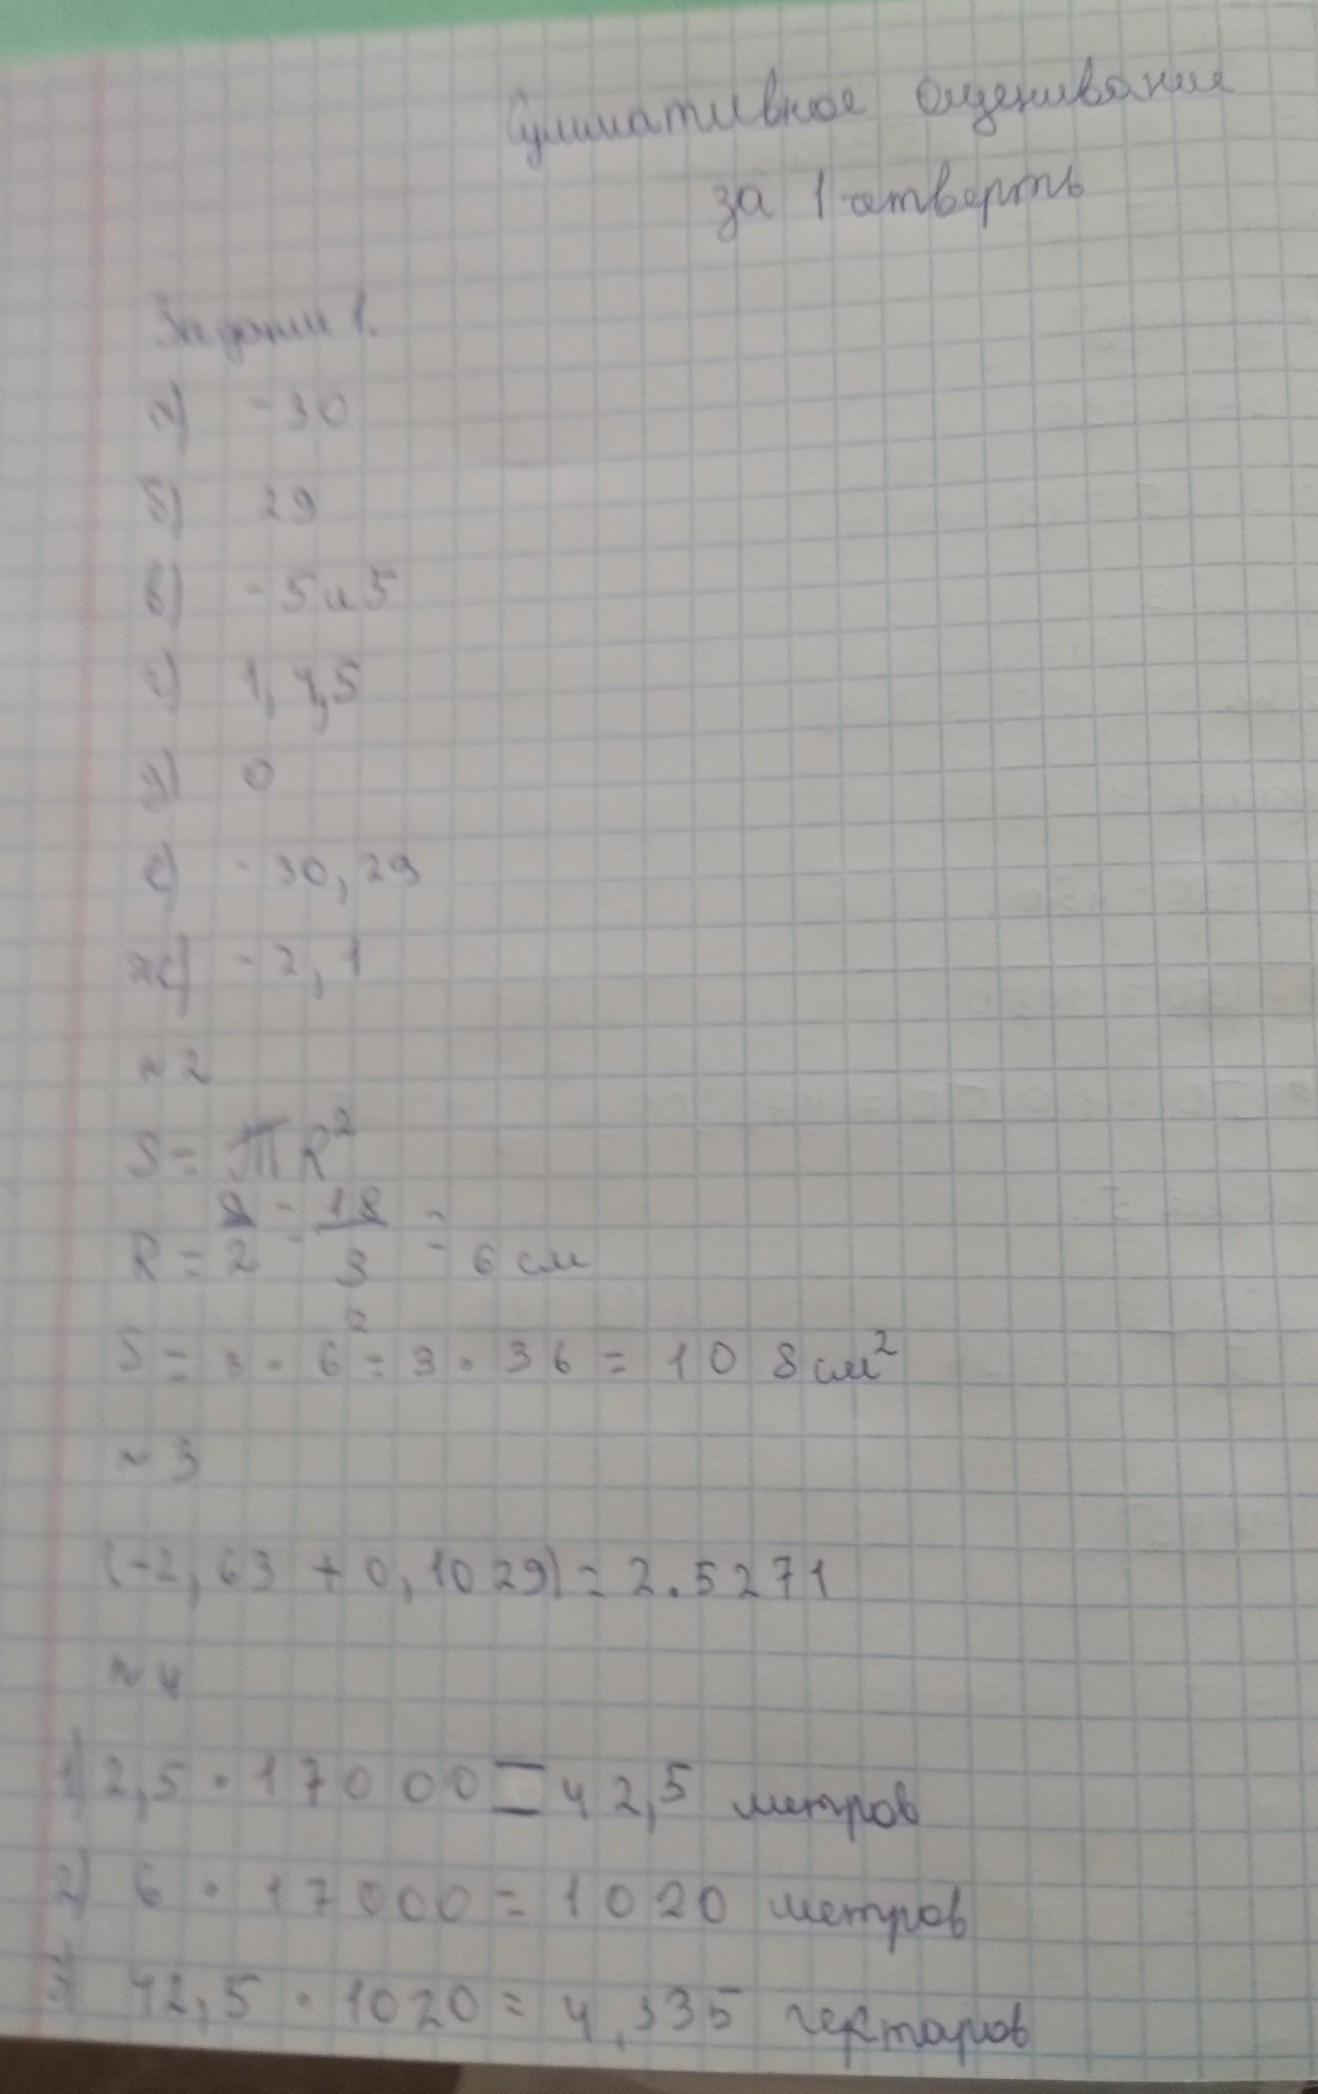 Суммативное оценивание
за 1 четверть
Задании 1.
а) -30
б) 29
в) -5 и 5
г) 1, 4,5
д) 0
е) -30, 29
ж) -2, 1
№2
S = πR²
R = 8/2 = 18/3 = 6 см
S = 3 · 6² = 3 · 36 = 108 см²
№3
(-2,63 + 0,1029) = 2.5271
№4
1) 2,5 · 17000 = 42,5 метров
2) 6 · 17000 = 1020 метров
3) 42,5 · 1020 = 4,335 гектаров